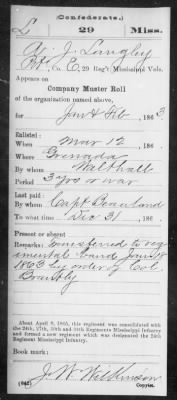 (Confederate.)
L 29 Miss.
A. J. Langley
Pvt, Co. E, 29 Reg't Mississippi Vols.
Appears on
Company Muster Roll
of the organization named above,
for Jan & Feb, 1863
Enlisted:
When Mar 12, 186
Where Grenada
By whom Walthall
Period 3 yrs or war
Last paid:
By whom Capt
To what time Dec 31, 186
Present or absent
Remarks: Transferred to reg
imental band Jan 18
1863 by order of Col.
Brantly
About April 9, 1865, this regiment was consolidated with
the 24th, 27th, 30th and 34th Regiments Mississippi Infantry
and formed a new regiment which was designated the 24th
Regiment Mississippi Infantry.
Book mark:
J. W. Wilkinson
(642) Copyist.